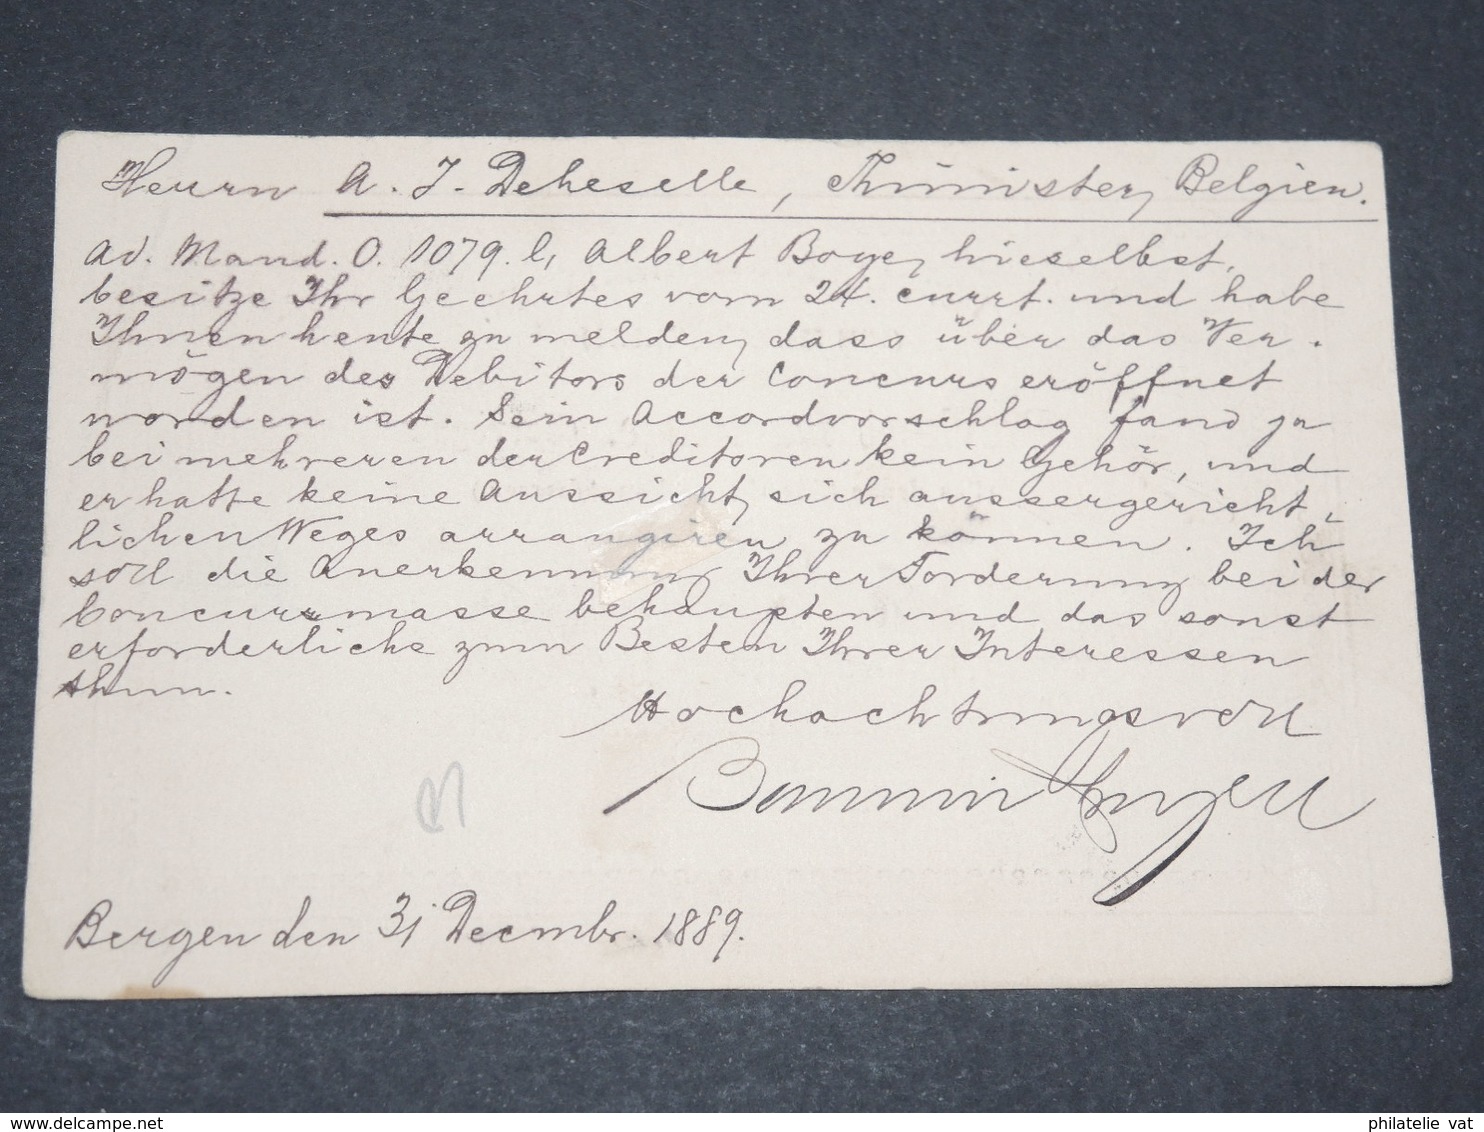 Herrn A. J. Deheselle, Thimister, Belgien.
Ad. Mand. O. 1079. l, Albert Boye, hieselbst,
besitze Ihr Geehrtes vom 24. currt. und habe
Ihnen heute zu melden, dass über das Ver-
mögen des Debitors der Concurs eröffnet
worden ist. Sein Accordvorschlag fand ja
bei mehreren der Creditoren kein Gehör, und
er hatte keine Aussicht, sich aussergericht-
lichen Weges arrangiren zu können. Ich
soll die Anerkennung Ihrer Forderung bei der
Concursmasse behaupten und das sonst
erforderliche zum Besten Ihrer Interessen
thun.
Hochachtungsvoll
Bergen den 31 Decmbr. 1889.
delcampe.net
philatelie vat